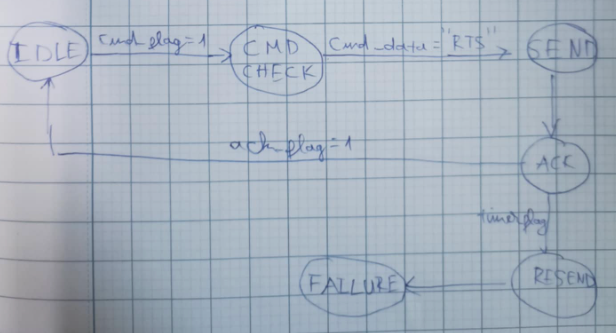 IDLE
cmd_flag=1
CMD
CHECK
cmd_data="RTS"
SEND
ack_flag=1
ACK
timerflag
FAILURE
RESEND